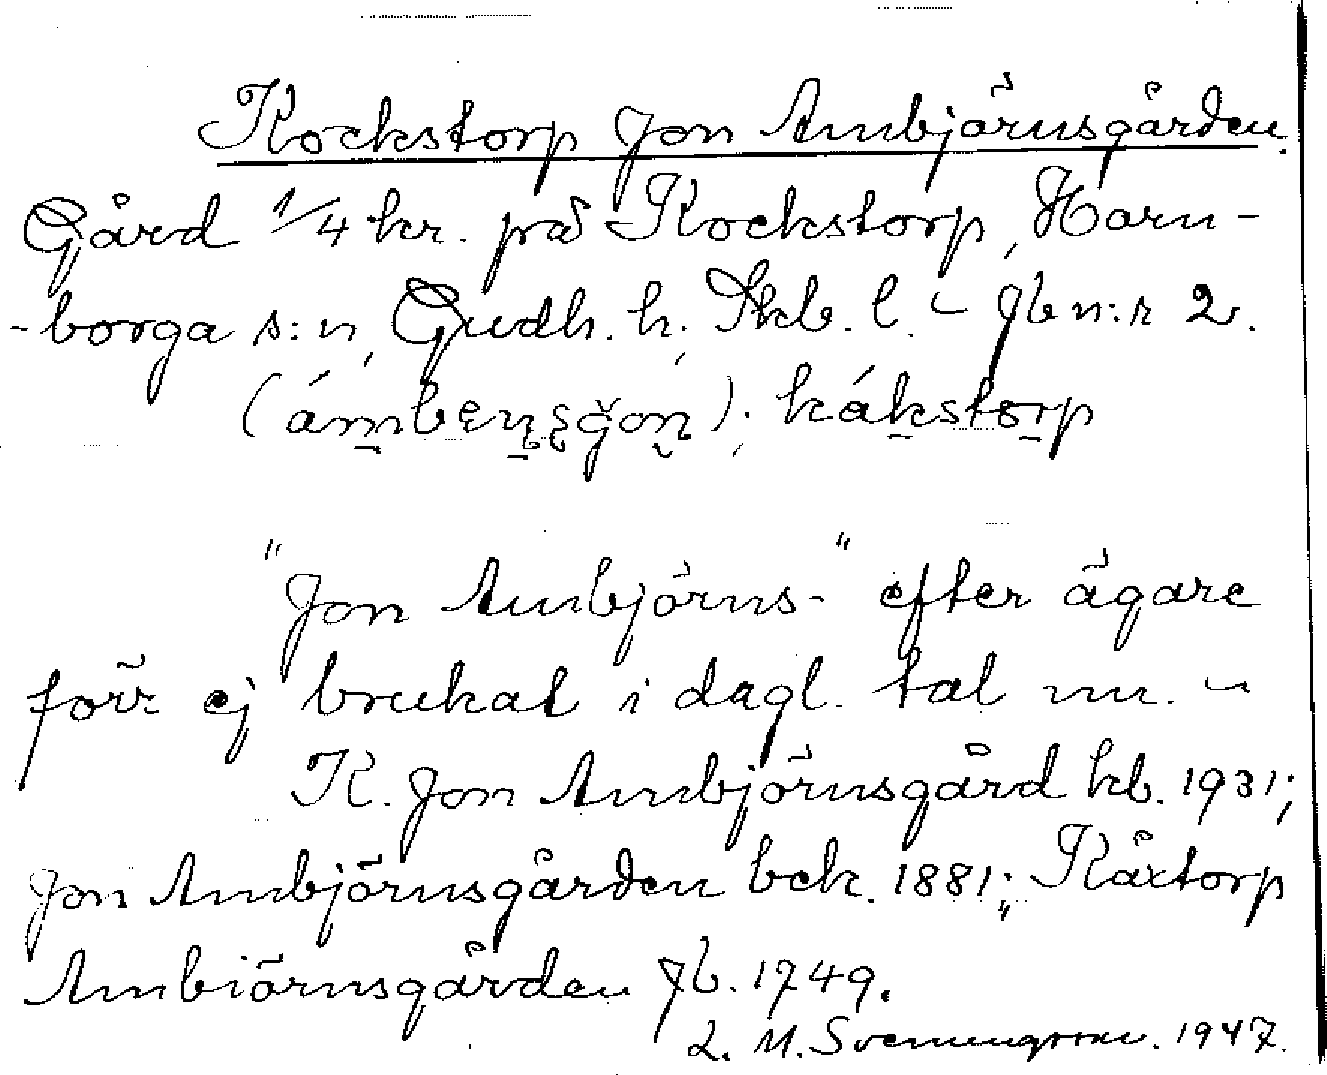 Kockstorp Jon Ambjörnsgården.
Gård 1/4 kr. på Kockstorp, Horn-
-borga s:n, Gudh. h., Skb. l. – Jb n:r 2.
(ámbensgon); kákstorp
"Jon Ambjörns-" efter ägare
förr ej brukat i dagl. tal nu. –
K. Jon Ambjörnsgård kb. 1931;
Jon Ambjörnsgården bek. 1881; Kåxtorp
Ambiörnsgården Jb. 1749.
L. M. Svenungsson. 1947.